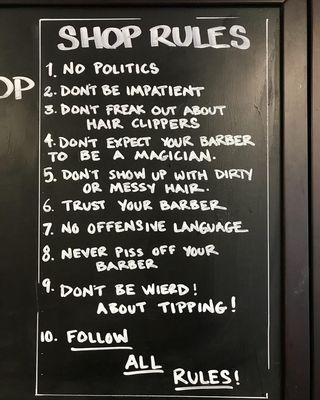 SHOP RULES
OP
1. NO POLITICS
2. DON'T BE IMPATIENT
3. DON'T FREAK OUT ABOUT
HAIR CLIPPERS
4. DON'T EXPECT YOUR BARBER
TO BE A MAGICIAN.
5. DON'T SHOW UP WITH DIRTY
OR MESSY HAIR.
6. TRUST YOUR BARBER
7. NO OFFENSIVE LANGUAGE
8. NEVER PISS OFF YOUR
BARBER
9. DON'T BE WIERD!
ABOUT TIPPING!
10. FOLLOW
ALL
RULES!